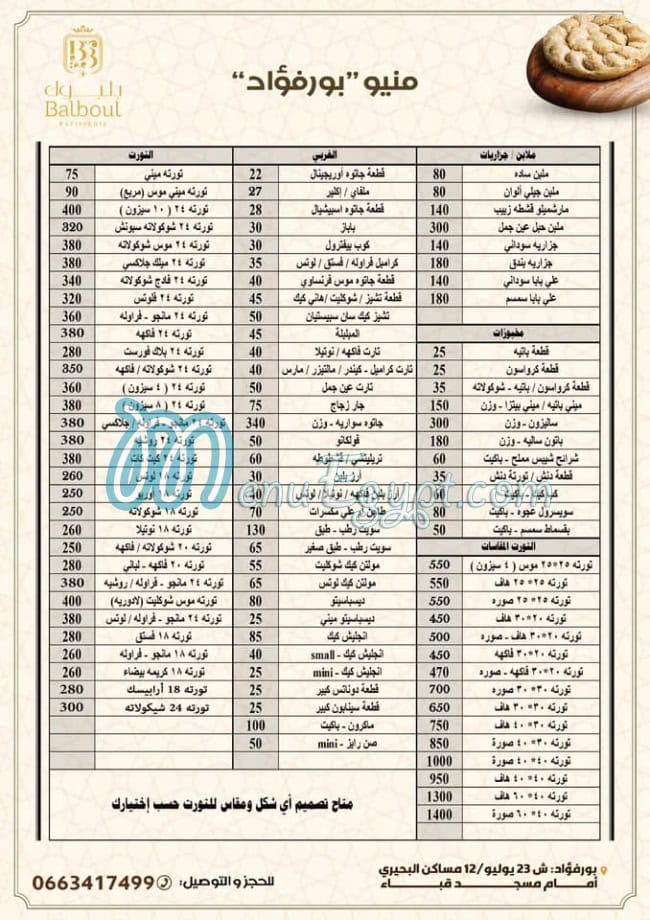 بلبول
Balboul
PATISSERIE
منيو "بورفؤاد"
ملابن / جزاريات
ملبن ساده 80
ملبن جيلي ألوان 80
مارشميلو قشطه زبيب 140
ملبن حبل عين جمل 300
جزاريه سوداني 140
جزاريه بندق 180
علي بابا سوداني 140
علي بابا سمسم 180
مخبوزات
قطعة باتيه 25
قطعة كرواسون 25
قطعة كرواسون / باتيه - شوكولاته 35
ميني باتيه / ميني بيتزا - وزن 150
ساليزون - وزن 300
باتون ساليه - وزن 180
شرائح شيبس مملح - باكيت 60
قطعة دنش / تورتة دنش 35
باكيت 60
سويسرول عجوه - باكيت 80
بقسماط سمسم - باكيت 50
التورت المقاسات
تورته ٢٥*٢٥ موس ( ٤ سيزون ) 550
تورته ٢٥*٢٥ هاف 550
تورته ٢٥*٢٥ صوره 550
تورته ٢٠*٣٠ هاف 450
تورته ٢٠*٣٠ هاف - صوره 500
تورته ٢٠*٣٠ فاكهه 450
تورته ٢٠*٣٠ فاكهه - صوره 470
تورته ٣٠*٣٠ صوره 700
تورته ٣٠*٣٠ هاف 650
تورته ٣٠*٤٠ هاف 750
تورته ٣٠*٤٠ صورة 850
تورته ٤٠*٤٠ صورة 1000
تورته ٤٠*٤٠ هاف 950
تورته ٤٠*٦٠ هاف 1300
تورته ٤٠*٦٠ صورة 1400
الغربي
قطعة جاتوه أوريجينال 22
ملفاي / إكلير 27
قطعة جاتوه اسبيشيال 28
باباز 30
كوب بيفترول 30
كراميل فراوله / فستق / لوتس 35
قطعة جاتوه موس فرنساوي 40
قطعة تشيز / شوكليت /هاني كيك 45
تشيز كيك سان سبيستيان 50
الميليلة 45
تارت فاكهه / نوتيلا 40
تارت كراميل - كيندر / مالتيزر / مارس 40
تارت عين جمل 50
جار زجاج 75
جاتوه سواريه - وزن 340
فولكانو 50
تريليتشي / قشطوطه 60
أرز بلبن 30
أرز بلبن فاكهه / نوتيلا / لوتس 40
طاجن أم علي مكسرات 70
سويت رطب - طبق 130
سويت رطب - طبق صغير 65
مولتن كيك شوكليت 55
مولتن كيك لوتس 65
ديسباسيتو 80
ديسباسيتو ميني 25
انجليش كيك 85
انجليش كيك - small 40
انجليش كيك - mini 25
قطعة دوناتس كبير 25
قطعة سينابون كبير 25
ماكرون - باكيت 100
صن رايز - mini 50
التورت
تورته ميني 75
تورته ميني موس (مربع) 90
تورته ٢٤ ( ١٠ سيزون ) 400
تورته ٢٤ شوكولاته سبونش 320
تورته ٢٤ موس شوكولاته 380
تورته ٢٤ ميلك جلاكسي 380
تورته ٢٤ فادج شوكولاته 340
تورته ٢٤ فلوتس 320
تورته ٢٤ مانجو - فراوله 360
تورته ٢٤ فاكهه 380
تورته ٢٤ بلاك فورست 280
تورته ٢٤ شوكولاته / فاكهه 350
تورته ٢٤ ( ٤ سيزون ) 360
تورته ٢٤ ( ٨ سيزون ) 380
تورته ٢٤ مانجو - فراوله / جلاكسي 380
تورته ٢٤ روشيه 380
تورته ٢٤ كيت كات 380
تورته ١٨ لوتس 260
تورته ١٨ أوريو 250
تورته ١٨ شوكولاته 250
تورته ١٨ نوتيلا 260
تورته ٢٠ شوكولاته / فاكهه 250
تورته ٢٠ فاكهه - لباني 280
تورته ٢٤ مانجو - فراوله / روشيه 380
تورته موس شوكليت (لادوريه) 400
تورته ٢٤ مانجو - فراوله / لوتس 380
تورته ١٨ فستق 280
تورته ١٨ مانجو - فراوله 260
تورته ١٨ كريمه بيضاء 260
تورته 18 أرابيسك 280
تورته 24 شيكولاته 300
متاح تصميم أي شكل ومقاس للتورت حسب إختيارك
MenuEgypt.com
بورفؤاد: ش 23 يوليو/12 مساكن البحيري
أمام مسجد قباء
للحجز و التوصيل: 0663417499